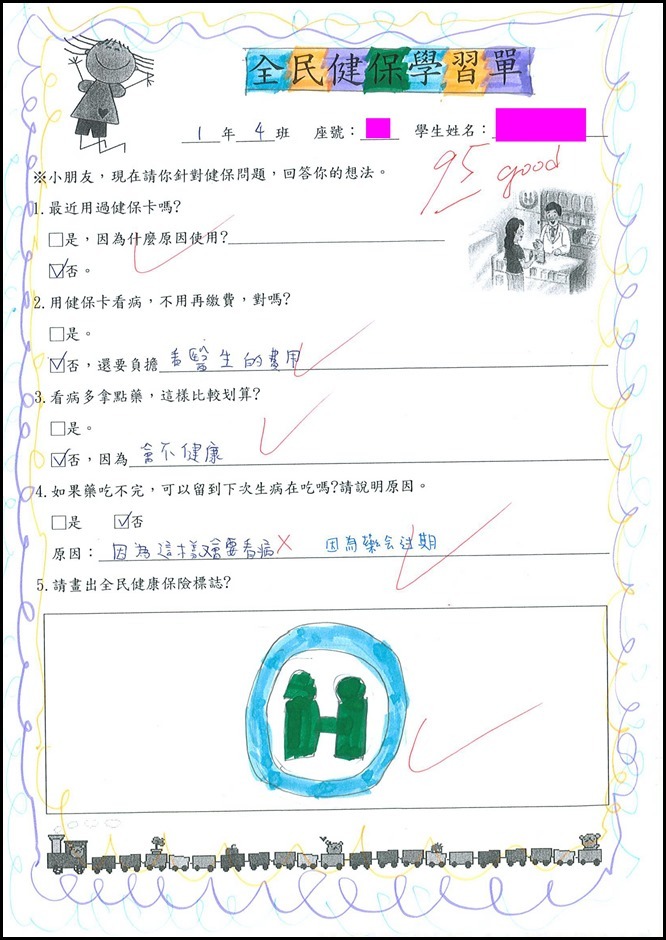 全民健保學習單
1年4班 座號： 學生姓名：
95 good
※小朋友，現在請你針對健保問題，回答你的想法。
1.最近用過健保卡嗎?
□是，因為什麼原因使用?
☑否。
2.用健保卡看病，不用再繳費，對嗎?
□是。
☑否，還要負擔看醫生的費用
3.看病多拿點藥，這樣比較划算?
□是。
☑否，因為會不健康
4.如果藥吃不完，可以留到下次生病在吃嗎?請說明原因。
□是 ☑否
原因：因為這樣又會要看病 因為藥会过期
5.請畫出全民健康保險標誌?
H